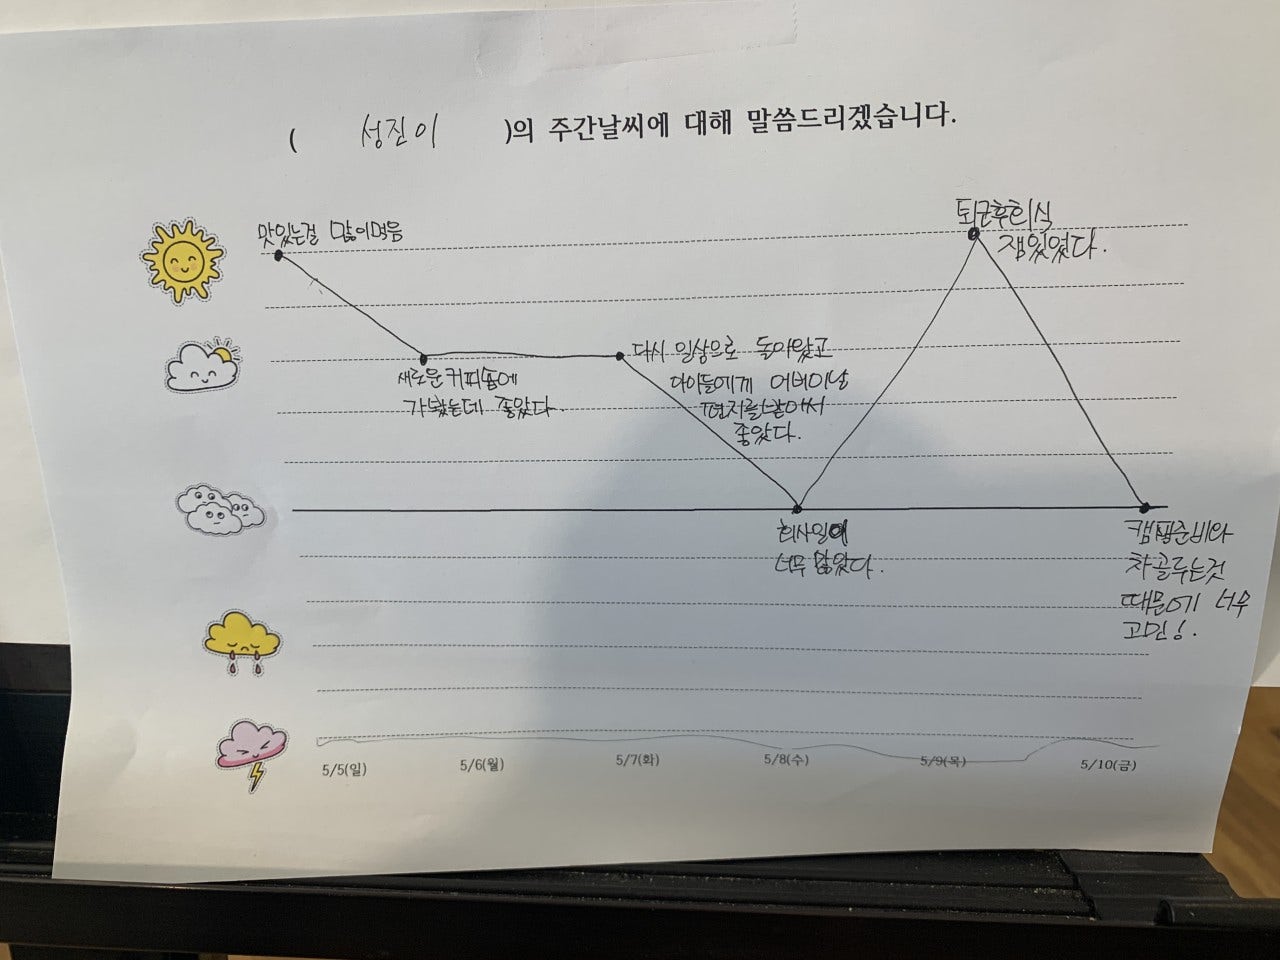 ( 성진이 )의 주간날씨에 대해 말씀드리겠습니다.
맛있는걸 많이먹음
새로운커피숍에
가봤는데 좋았다.
다시 일상으로 돌아왔고
다이들에게 어버이날
편지를받아서
좋았다.
회사일이
너무 많았다.
퇴근후회식
잼있었다.
캠핑준비와
차고르는것
때문에 너무
고민!.
5/5(일) 5/6(월) 5/7(화) 5/8(수) 5/9(목) 5/10(금)